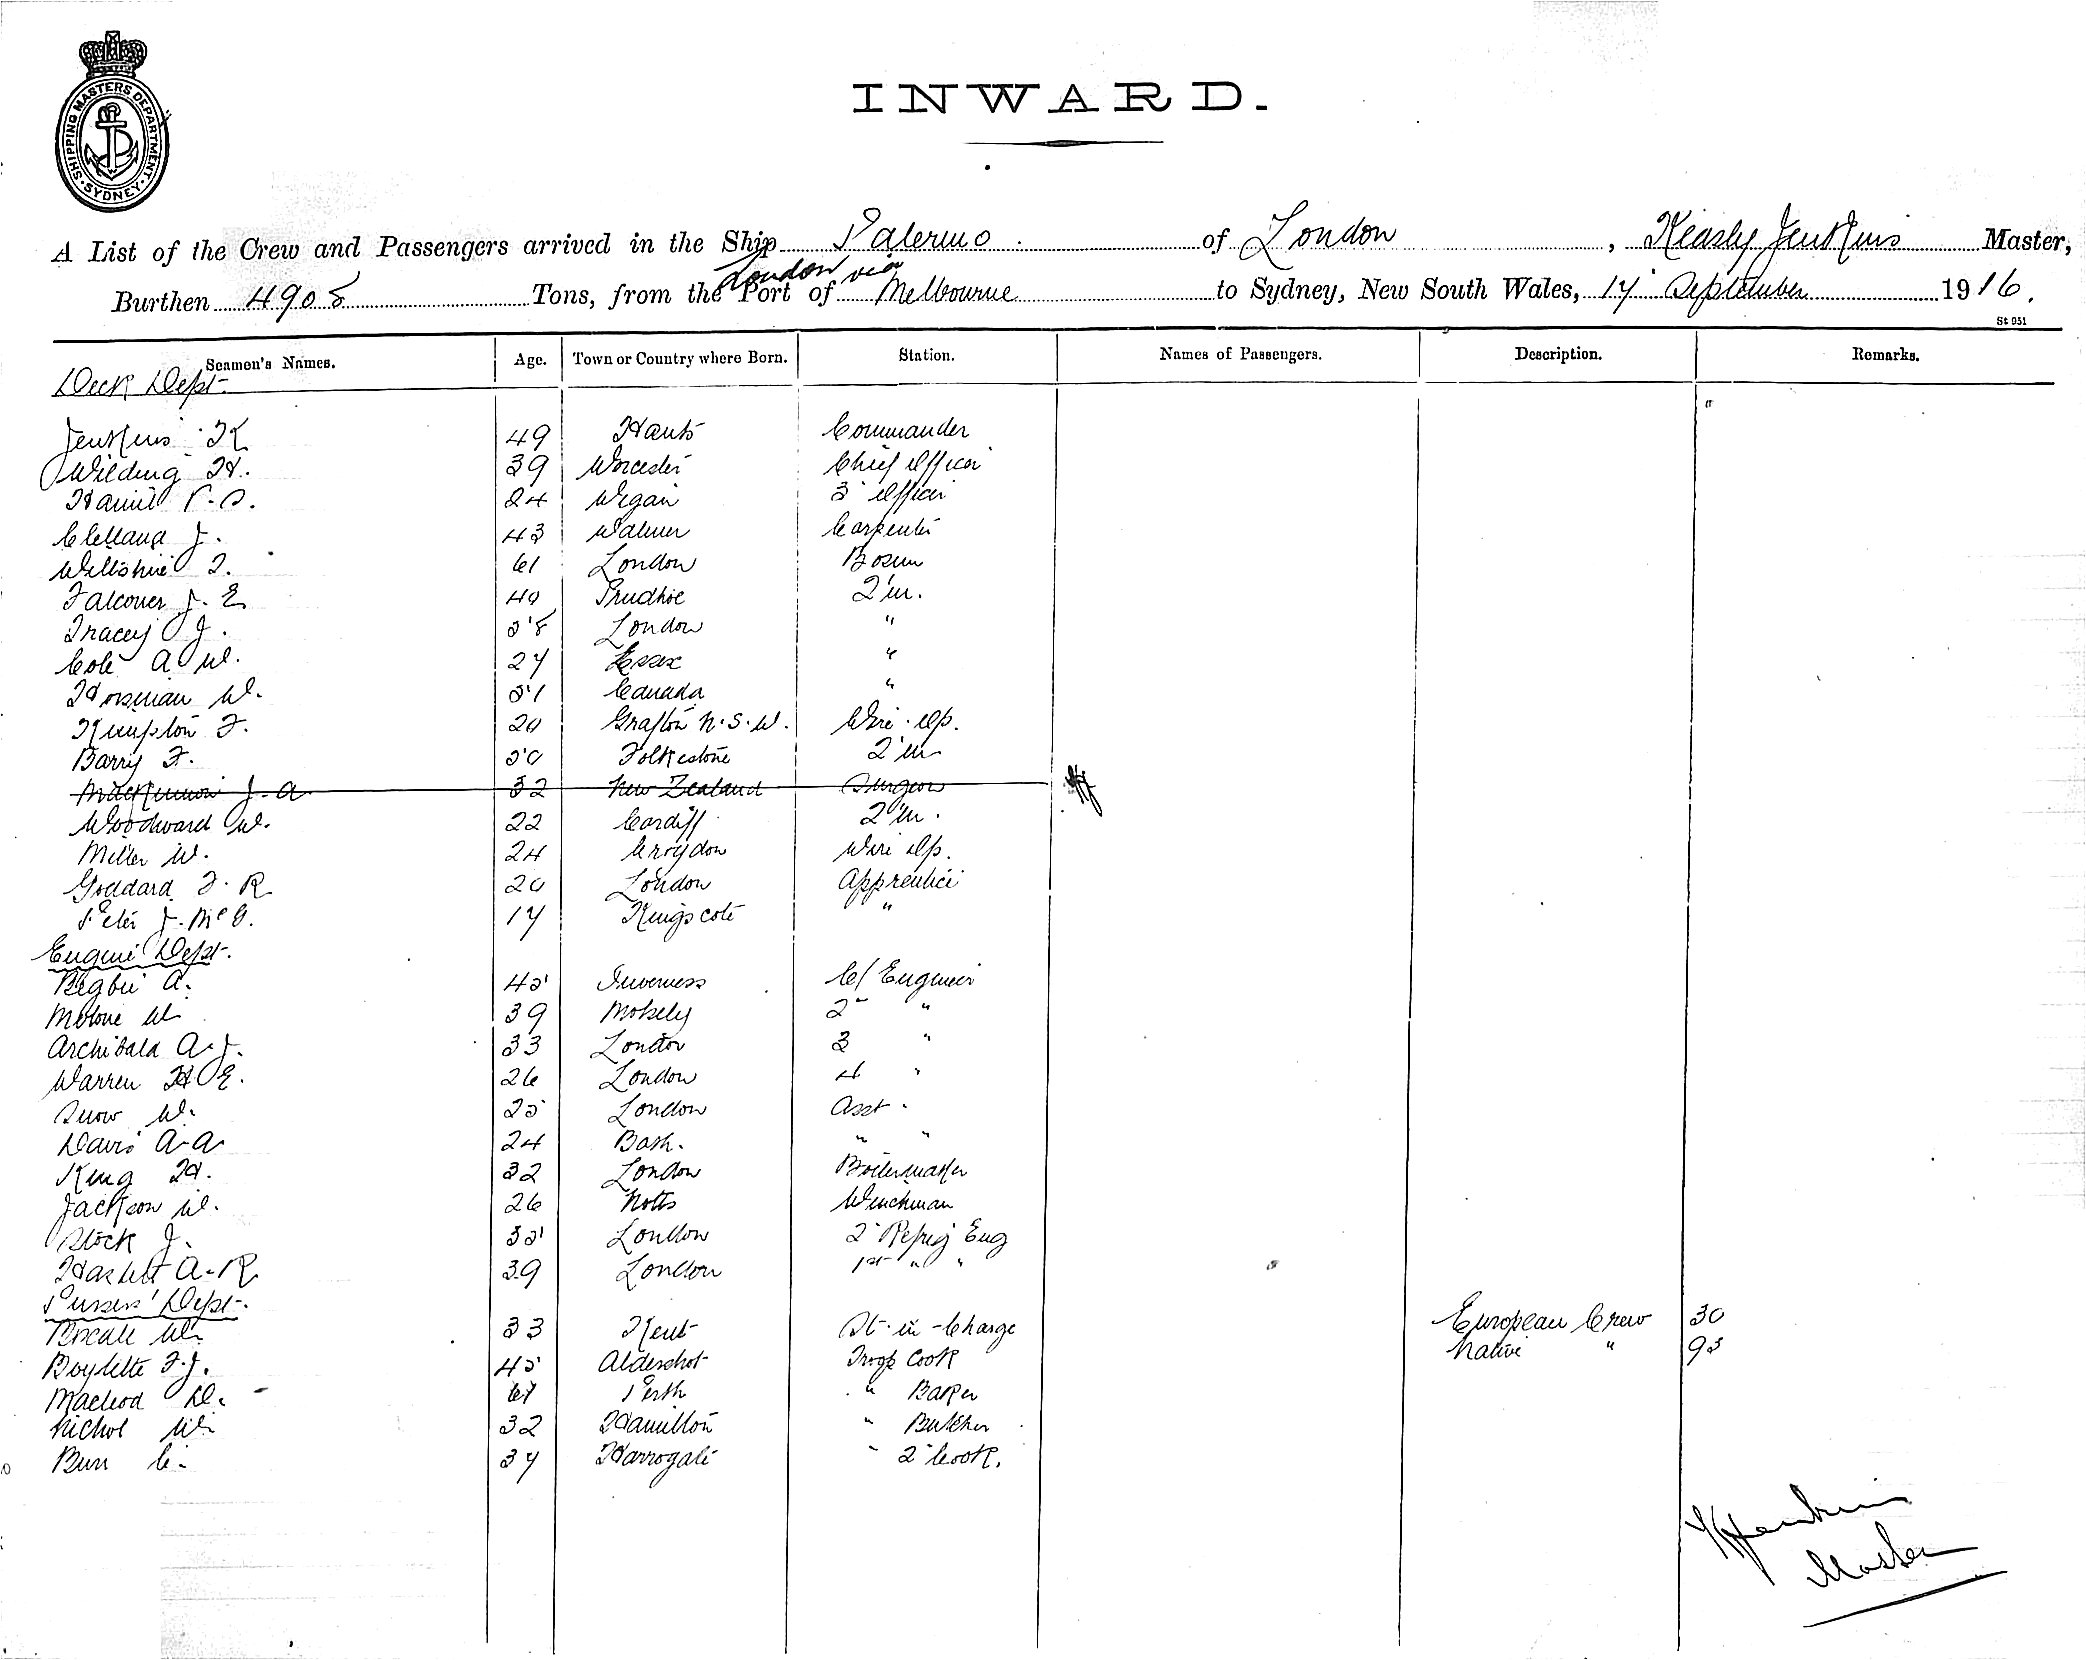 SHIPPING MASTERS DEPARTMENT. SYDNEY.
INWARD.
A List of the Crew and Passengers arrived in the Ship Palermo of London, Keasly Jenkins Master,
London via
Burthen 4908 Tons, from the Port of Melbourne to Sydney, New South Wales, 17 September 1916.
St 051
Seamen's Names. Age. Town or Country where Born. Station. Names of Passengers. Description. Remarks.
Deck Dept.
Jenkins K 49 Hants Commander
Wilding H. 39 Worcester Chief Officer
24 Wigan 3 Officer
J. 43 Walmer Carpenter
Wiltshire T. 61 London Bosun
Falconer J. E. 40 Prudhoe 2 m.
Tracey J. 38 London "
Cole A W. 27 Essex "
Horsman W. 51 Canada "
Kempton F. 20 Grafton N.S.W. Wire. Op.
Barry F. 50 Folkestone 2 m
MacKinnon J. A 32 New Zealand Surgeon
Woodward W. 22 Cardiff 2 m.
Miller W. 24 Croydon Wire Op.
Goddard F. R 20 London Apprentice
Peter J. McG. 17 Kingscote "
Engine Dept.
Begbie A. 45 Inverness C/ Engineer
W 39 2 "
Archibald A. J. 33 London 3 "
Warren H E. 26 London 4 "
Snow W. 25 London Asst "
Davis A. A 24 Bath. " "
King H. 32 London Boilermaker
Jackson W. 26 Notts Winchman
Stock J. 35 London 2 Refrig Eng
Haslett A. R. 39 London 1st " "
Pursers' Dept.
W. 33 Kent St-in-Charge European Crew 30
Boylette F. J. 45 Aldershot Troop Cook Native " 95
Macleod D. 61 Perth " Baker
Nichol W. 32 Hamilton " Butcher
Burr C. 37 Harrogate " 2 Cook.
K Jenkins
Master